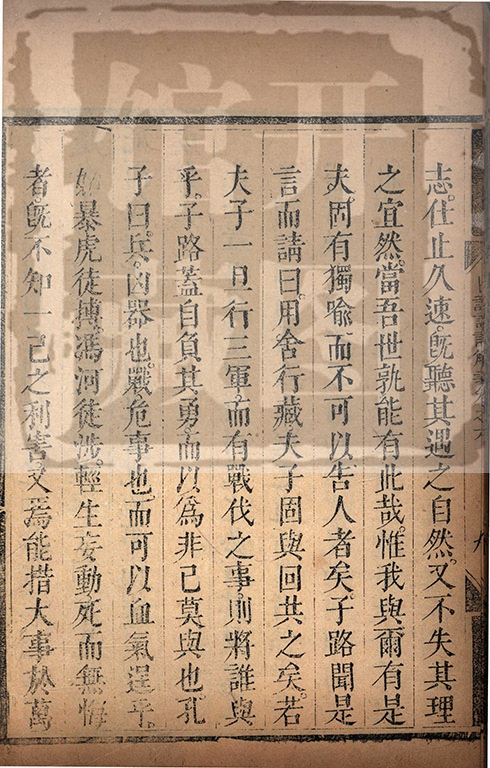 志仕止久速既聽其遇之自然又不失其理
之宜然當吾世孰能有此哉惟我與爾有是
夫固有獨喻而不可以告人者矣子路聞是
言而請曰用舍行藏夫子固與回共之矣若
夫子一旦行三軍而有戰伐之事則將誰與
乎子路蓋自負其勇而以爲非己莫與也孔
子曰兵凶器也戰危事也而可以血氣逞乎
如暴虎徒搏馮河徒涉輕生妄動死而無悔
者旣不知一己之利害又焉能措大事於萬
九